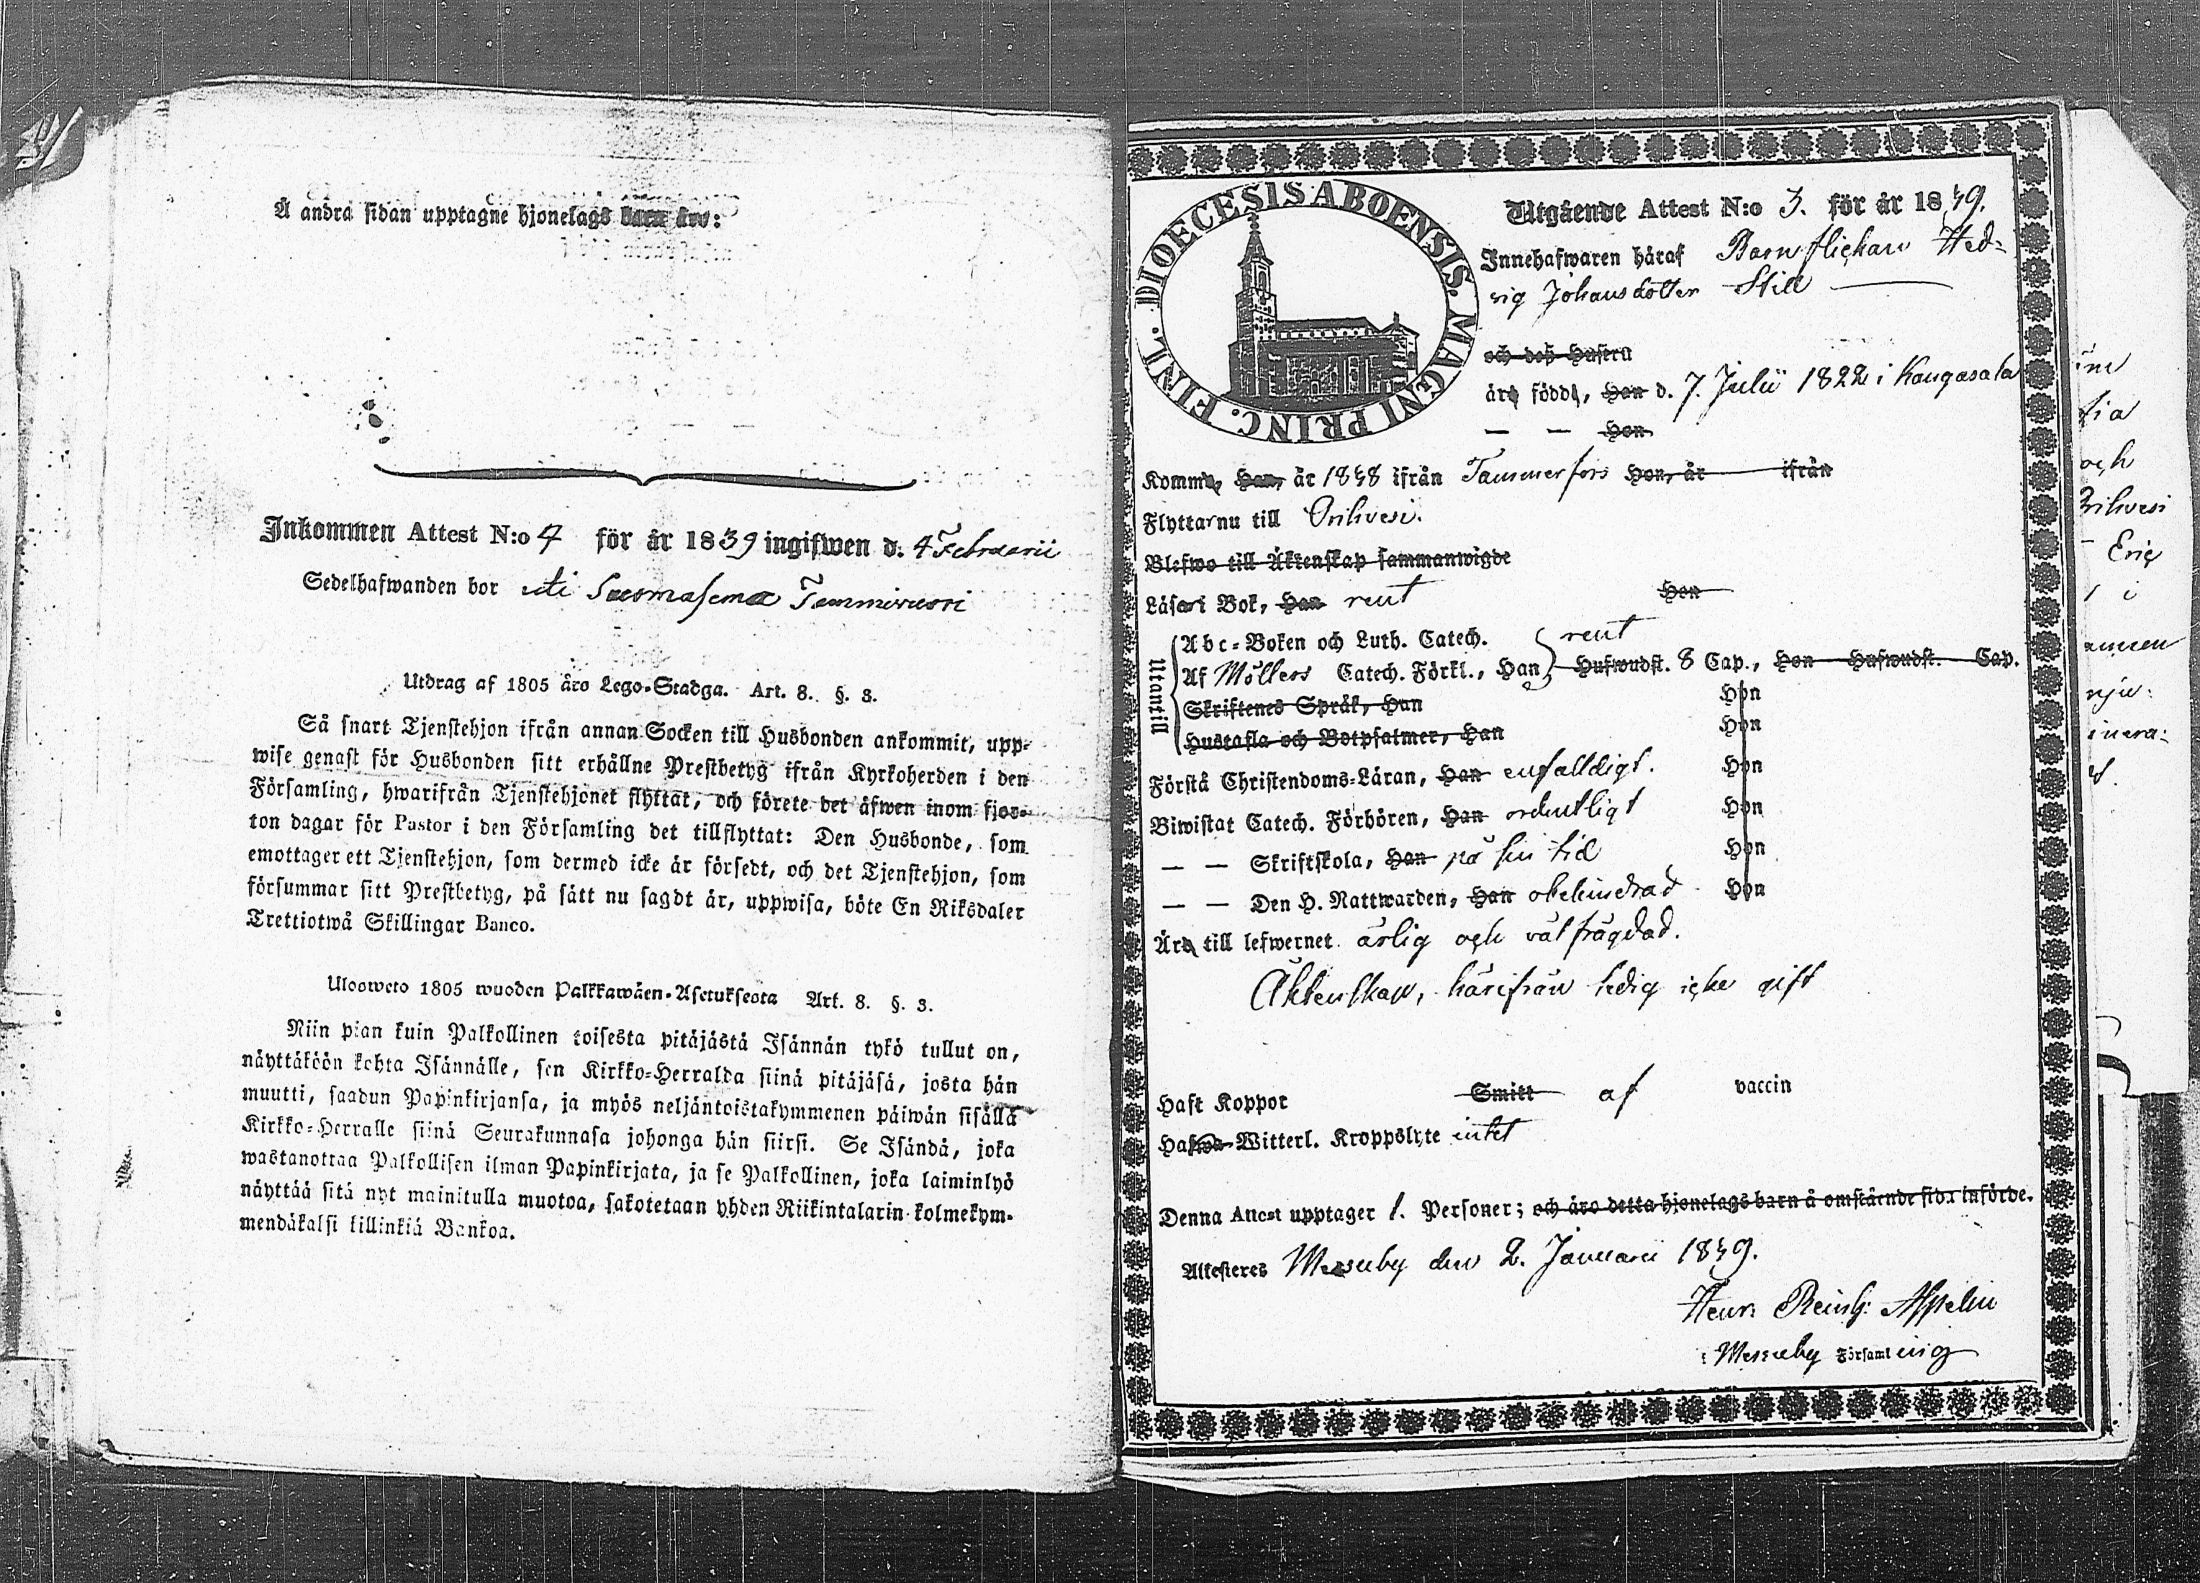 Å andra sidan upptagne hjonelags barn äro:
Inkommen Attest N:o 4 för år 1839 ingifwen d. 4 Februarii
Sedelhafwanden bor uti Suomasema Tammirusri
Utdrag af 1805 års Lego-Stadga. Art. 8. §. 3.
Så snart Tjenstehjon ifrån annan Socken till Husbonden ankommit, upp-
wise genast för Husbonden sitt erhållne Prestbetyg ifrån Kyrkoherden i den
Församling, hwarifrån Tjenstehjonet flyttat, och förete det äfwen inom fjor-
ton dagar för Pastor i den Församling det tillflyttat: Den Husbonde, som
emottager ett Tjenstehjon, som dermed icke är försedt, och det Tjenstehjon, som
försummar sitt Prestbetyg, på sätt nu sagdt är, uppwisa, böte En Riksdaler
Trettiotwå Skillingar Banco.
Ulosweto 1805 wuoden Palkkawäen-Asetuksesta Art. 8. §. 3.
Niin pian kuin Palkollinen toisesta pitäjästä Isännän tykö tullut on,
näyttäköön kohta Isännälle, sen Kirkko-Herralda siinä pitäjäsä, josta hän
muutti, saadun Papinkirjansa, ja myös neljäntoistakymmenen päiwän sisällä
Kirkko-Herralle siinä Seurakunnasa johonga hän siirsi. Se Isändä, joka
wastanottaa Palkollisen ilman Papinkirjata, ja se Palkollinen, joka laiminlyö
näyttää sitä nyt mainitulla muotoa, sakotetaan yhden Riikintalarin kolmekym-
mendäkaksi killinkiä Bankoa.
DIOECESIS ABOENSIS. MAGNI PRINC. FINL.
Utgående Attest N:o 3. för år 1849.
Innehafwaren häraf Barnflickan Hed-
vig Johansdotter Still
och deß Hustru
äro födde, Han d. 7. Julii 1822 i Kangasala
— — Hon
Kommo, Han, år 1848 ifrån Tammerfors Hon, år ifrån
Flyttar nu till Orihvesi.
Blefwo till Äktenskap sammanwigde
Läsa i Bok, Han rent Hon
Utantill
Abc-Boken och Luth. Catech. rent
Af Möllers Catech. Förkl., Han Hufwudst. 8 Cap., Hon Hufwudst. Cap.
Skriftenes Språk, Han Hon
Hustafla och Botpsalmer, Han Hon
Förstå Christendoms-Läran, Han enfalldigt. Hon
Biwistat Catech. Förhören, Han ordentligt Hon
— — Skriftskola, Han på sin tid Hon
— — Den H. Nattwarden, Han obehindrad Hon
Äro till lefwernet ärlig och välfrägdad.
Äktenskap, härifrån ledig icke gift
Haft Koppor Smitt af vaccin
Hafwa Witterl. Kroppslyte intet
Denna Attest upptager 1. Personer; och äro detta hjonelags barn å omstående sida införde.
Attesteres Messuby den 2. Januarii 1849.
Henr. Reinh: Aspelin
i Messuby Församling
och
Orihvesi
Eric
i